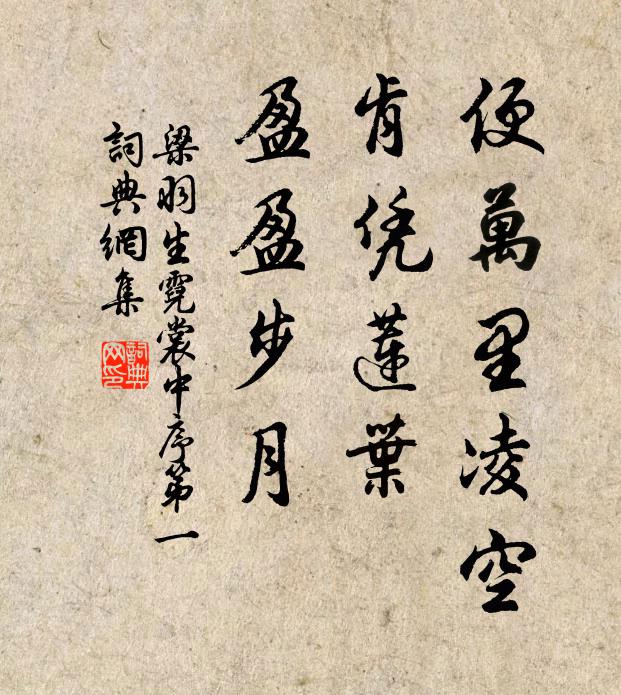 便萬里凌空
肯凭蓮葉
盈盈步月
梁羽生霓裳中序第一
詞典網集
詞典网印